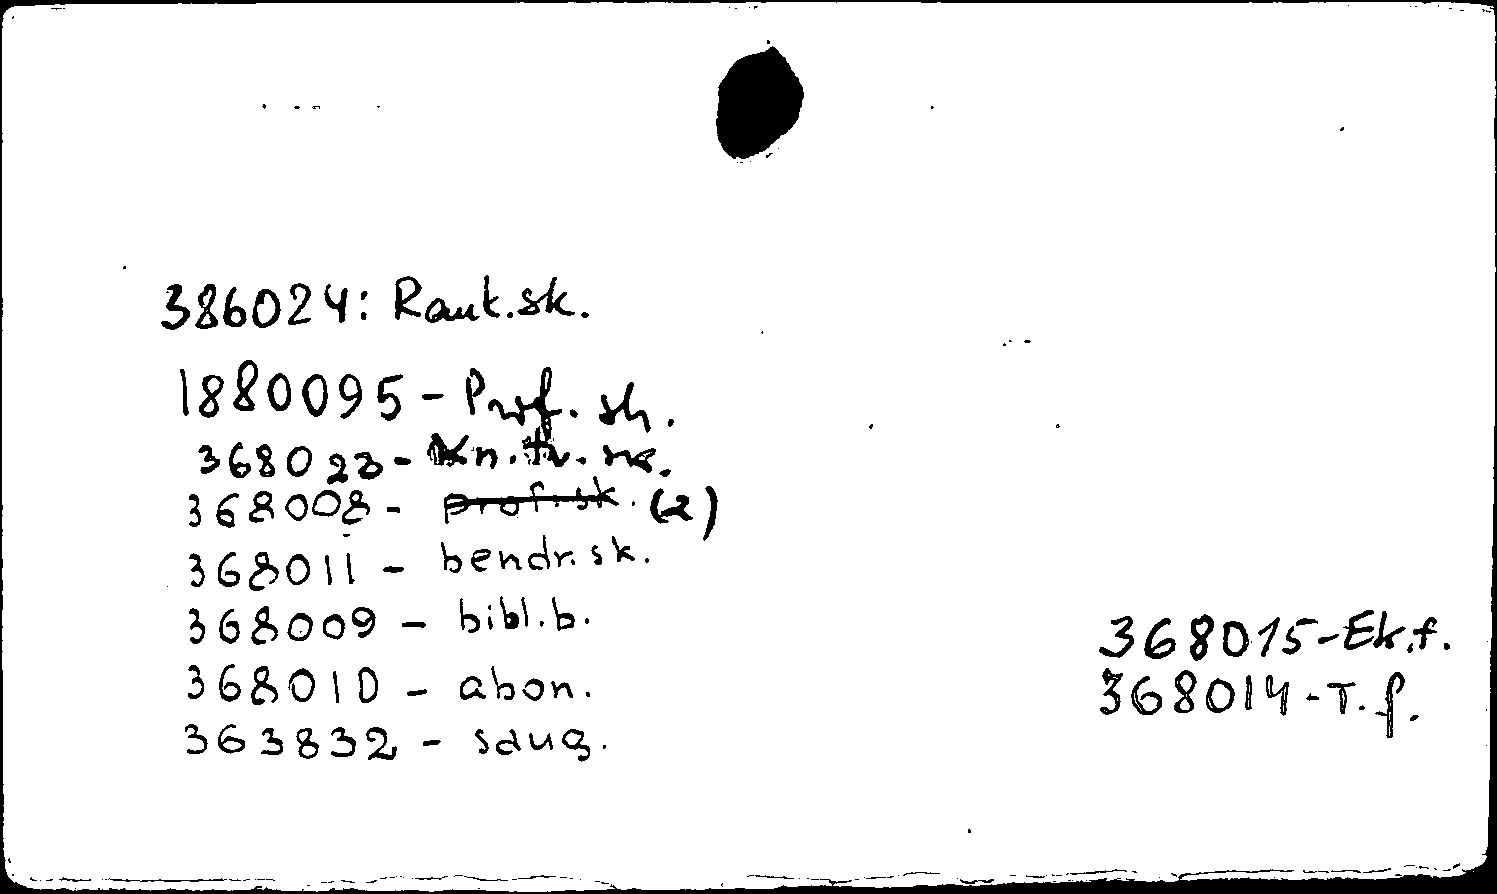 386024: Rank.sk.
1880095 - Prof. sk.
368023 - Kn.tv. sk.
368008 - prof. sk. (2)
368011 - bendr. sk.
368009 - bibl. b.
368010 - abon.
363832 - saug.
368015 - Ek.f.
368014 - T. f.